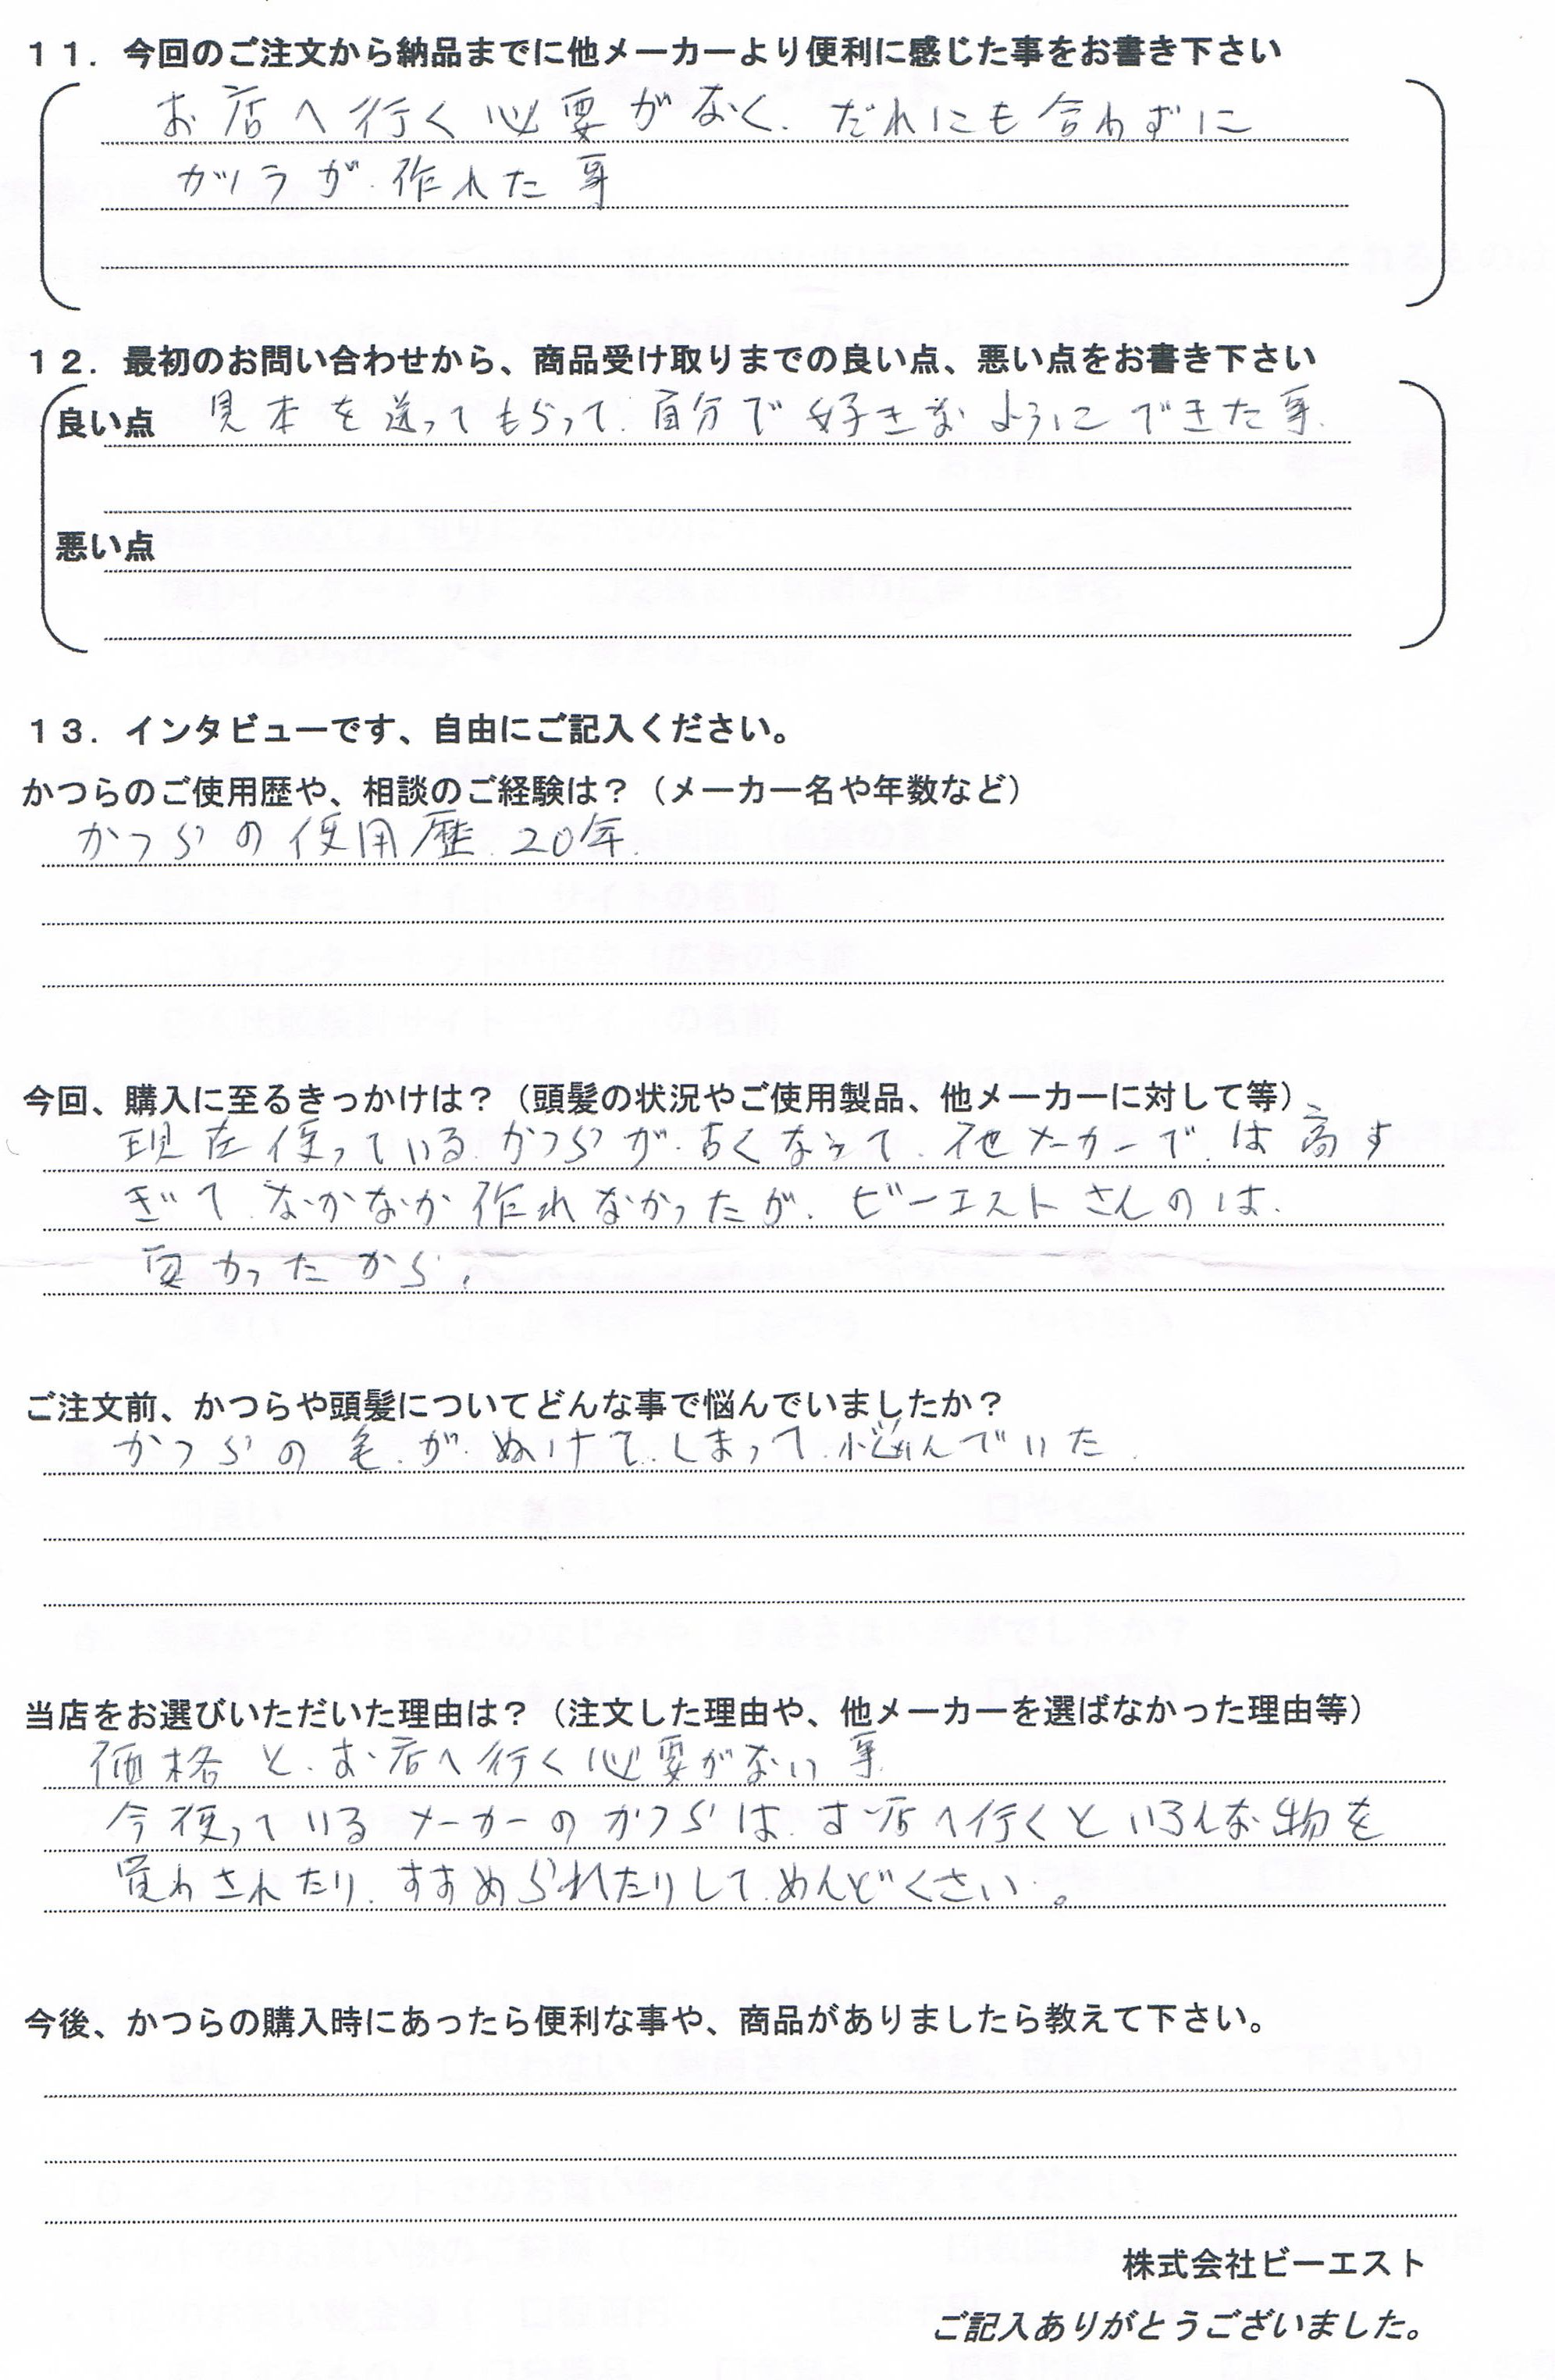 １１．今回のご注文から納品までに他メーカーより便利に感じた事をお書き下さい
お店へ行く必要がなく．だれにも合わずに
カツラが．作れた事
１２．最初のお問い合わせから、商品受け取りまでの良い点、悪い点をお書き下さい
良い点 見本を送ってもらって．自分で好きなようにできた事．
悪い点
１３．インタビューです、自由にご記入ください。
かつらのご使用歴や、相談のご経験は？（メーカー名や年数など）
かつらの使用歴．20年．
今回、購入に至るきっかけは？（頭髪の状況やご使用製品、他メーカーに対して等）
現在使っている．かつらが．古くなって．他メーカーで．は高す
ぎて．なかなか作れなかったが．ビーエストさんのは．
良かったから．
ご注文前、かつらや頭髪についてどんな事で悩んでいましたか？
かつらの毛．が．ぬけて．しまって．悩んでいた．
当店をお選びいただいた理由は？（注文した理由や、他メーカーを選ばなかった理由等）
価格と．お店へ行く必要がない事
今使っているメーカーのかつらは．お店へ行くといろんな物を
買わされたり．すすめられたりして．めんどくさい。
今後、かつらの購入時にあったら便利な事や、商品がありましたら教えて下さい。
株式会社ビーエスト
ご記入ありがとうございました。